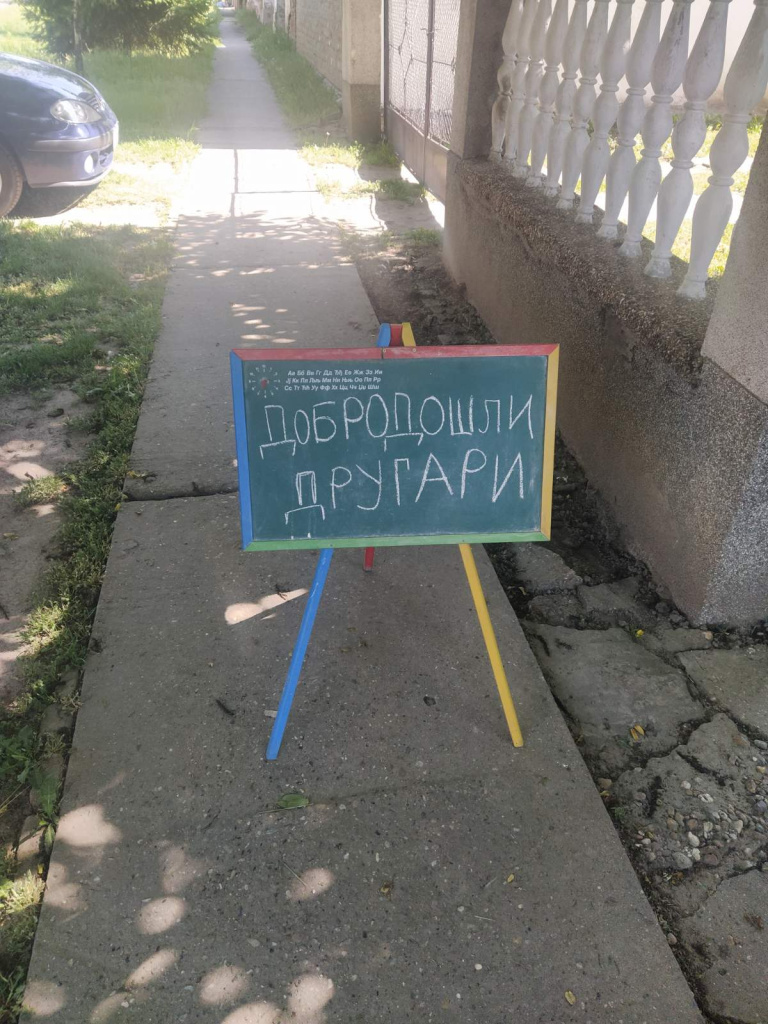 Аа Бб Вв Гг Дд Ђђ Ее Жж Зз Ии
Јј Кк Лл Љљ Мм Нн Њњ Оо Пп Рр
Сс Тт Ћћ Уу Фф Хх Цц Чч Џџ Шш
ДОБРОДОШЛИ
ДРУГАРИ